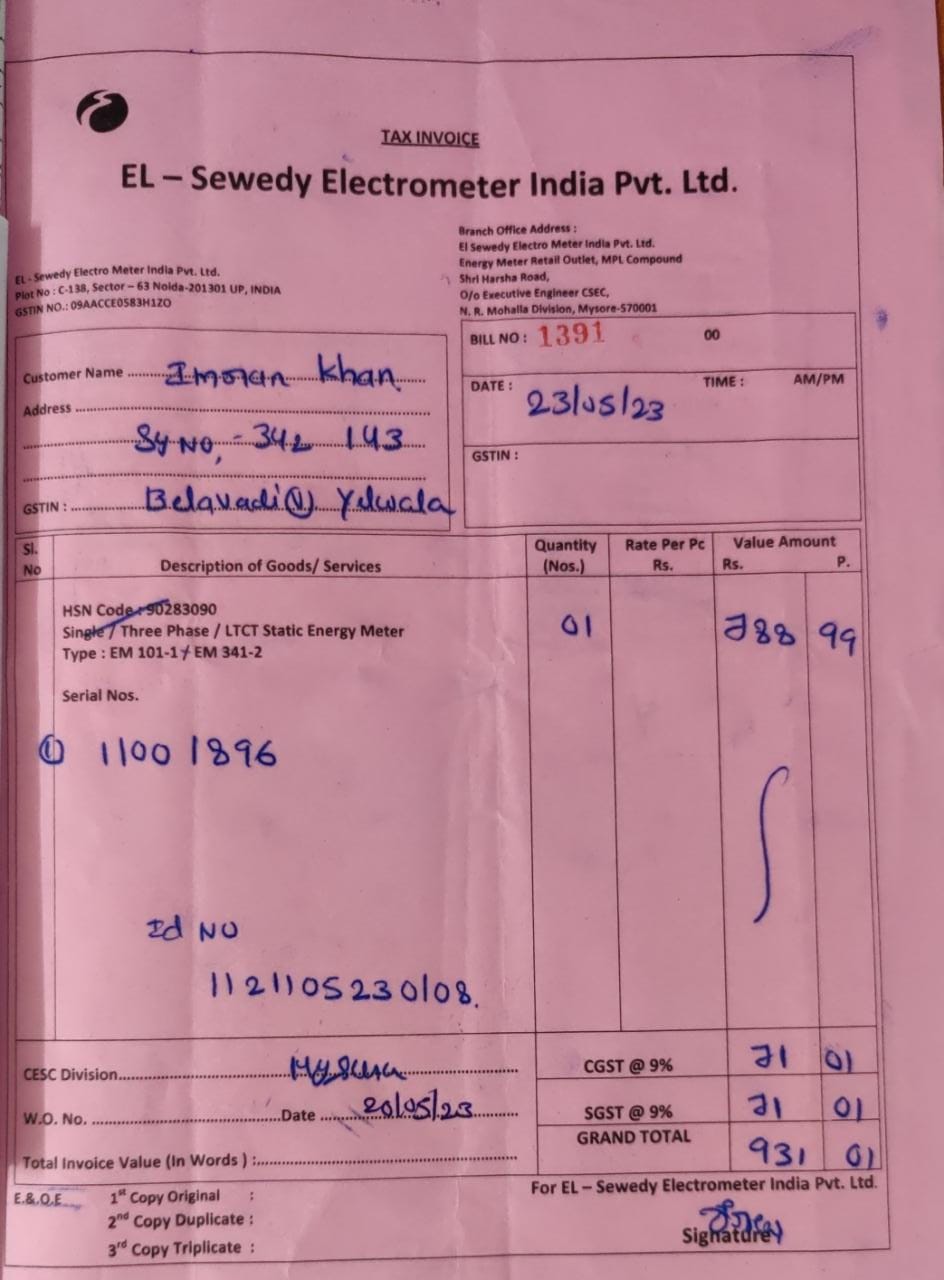 TAX INVOICE
EL – Sewedy Electrometer India Pvt. Ltd.
EL - Sewedy Electro Meter India Pvt. Ltd.
Plot No : C-138, Sector – 63 Noida-201301 UP, INDIA
GSTIN NO.: 09AACCE0583H1ZO
Branch Office Address :
El Sewedy Electro Meter India Pvt. Ltd.
Energy Meter Retail Outlet, MPL Compound
Shri Harsha Road,
O/o Executive Engineer CSEC,
N. R. Mohalla Division, Mysore-570001
Customer Name Imoran Khan
Address
Sy No, - 342 143
GSTIN : Belavadi (V) Yelwala
BILL NO : 1391 00
DATE : 23/05/23 TIME : AM/PM
GSTIN :
Sl. No Description of Goods/ Services Quantity (Nos.) Rate Per Pc Rs. Value Amount Rs. P.
HSN Code : 90283090
Single / Three Phase / LTCT Static Energy Meter 01 788 99
Type : EM 101-1 / EM 341-2
Serial Nos.
① 11001896
Id NO
1121105230108.
CESC Division Mysuru CGST @ 9% 71 01
W.O. No. Date 20/05/23 SGST @ 9% 71 01
Total Invoice Value (In Words ) : GRAND TOTAL 931 01
E.&.O.E 1st Copy Original :
2nd Copy Duplicate :
3rd Copy Triplicate :
For EL – Sewedy Electrometer India Pvt. Ltd.
Signature